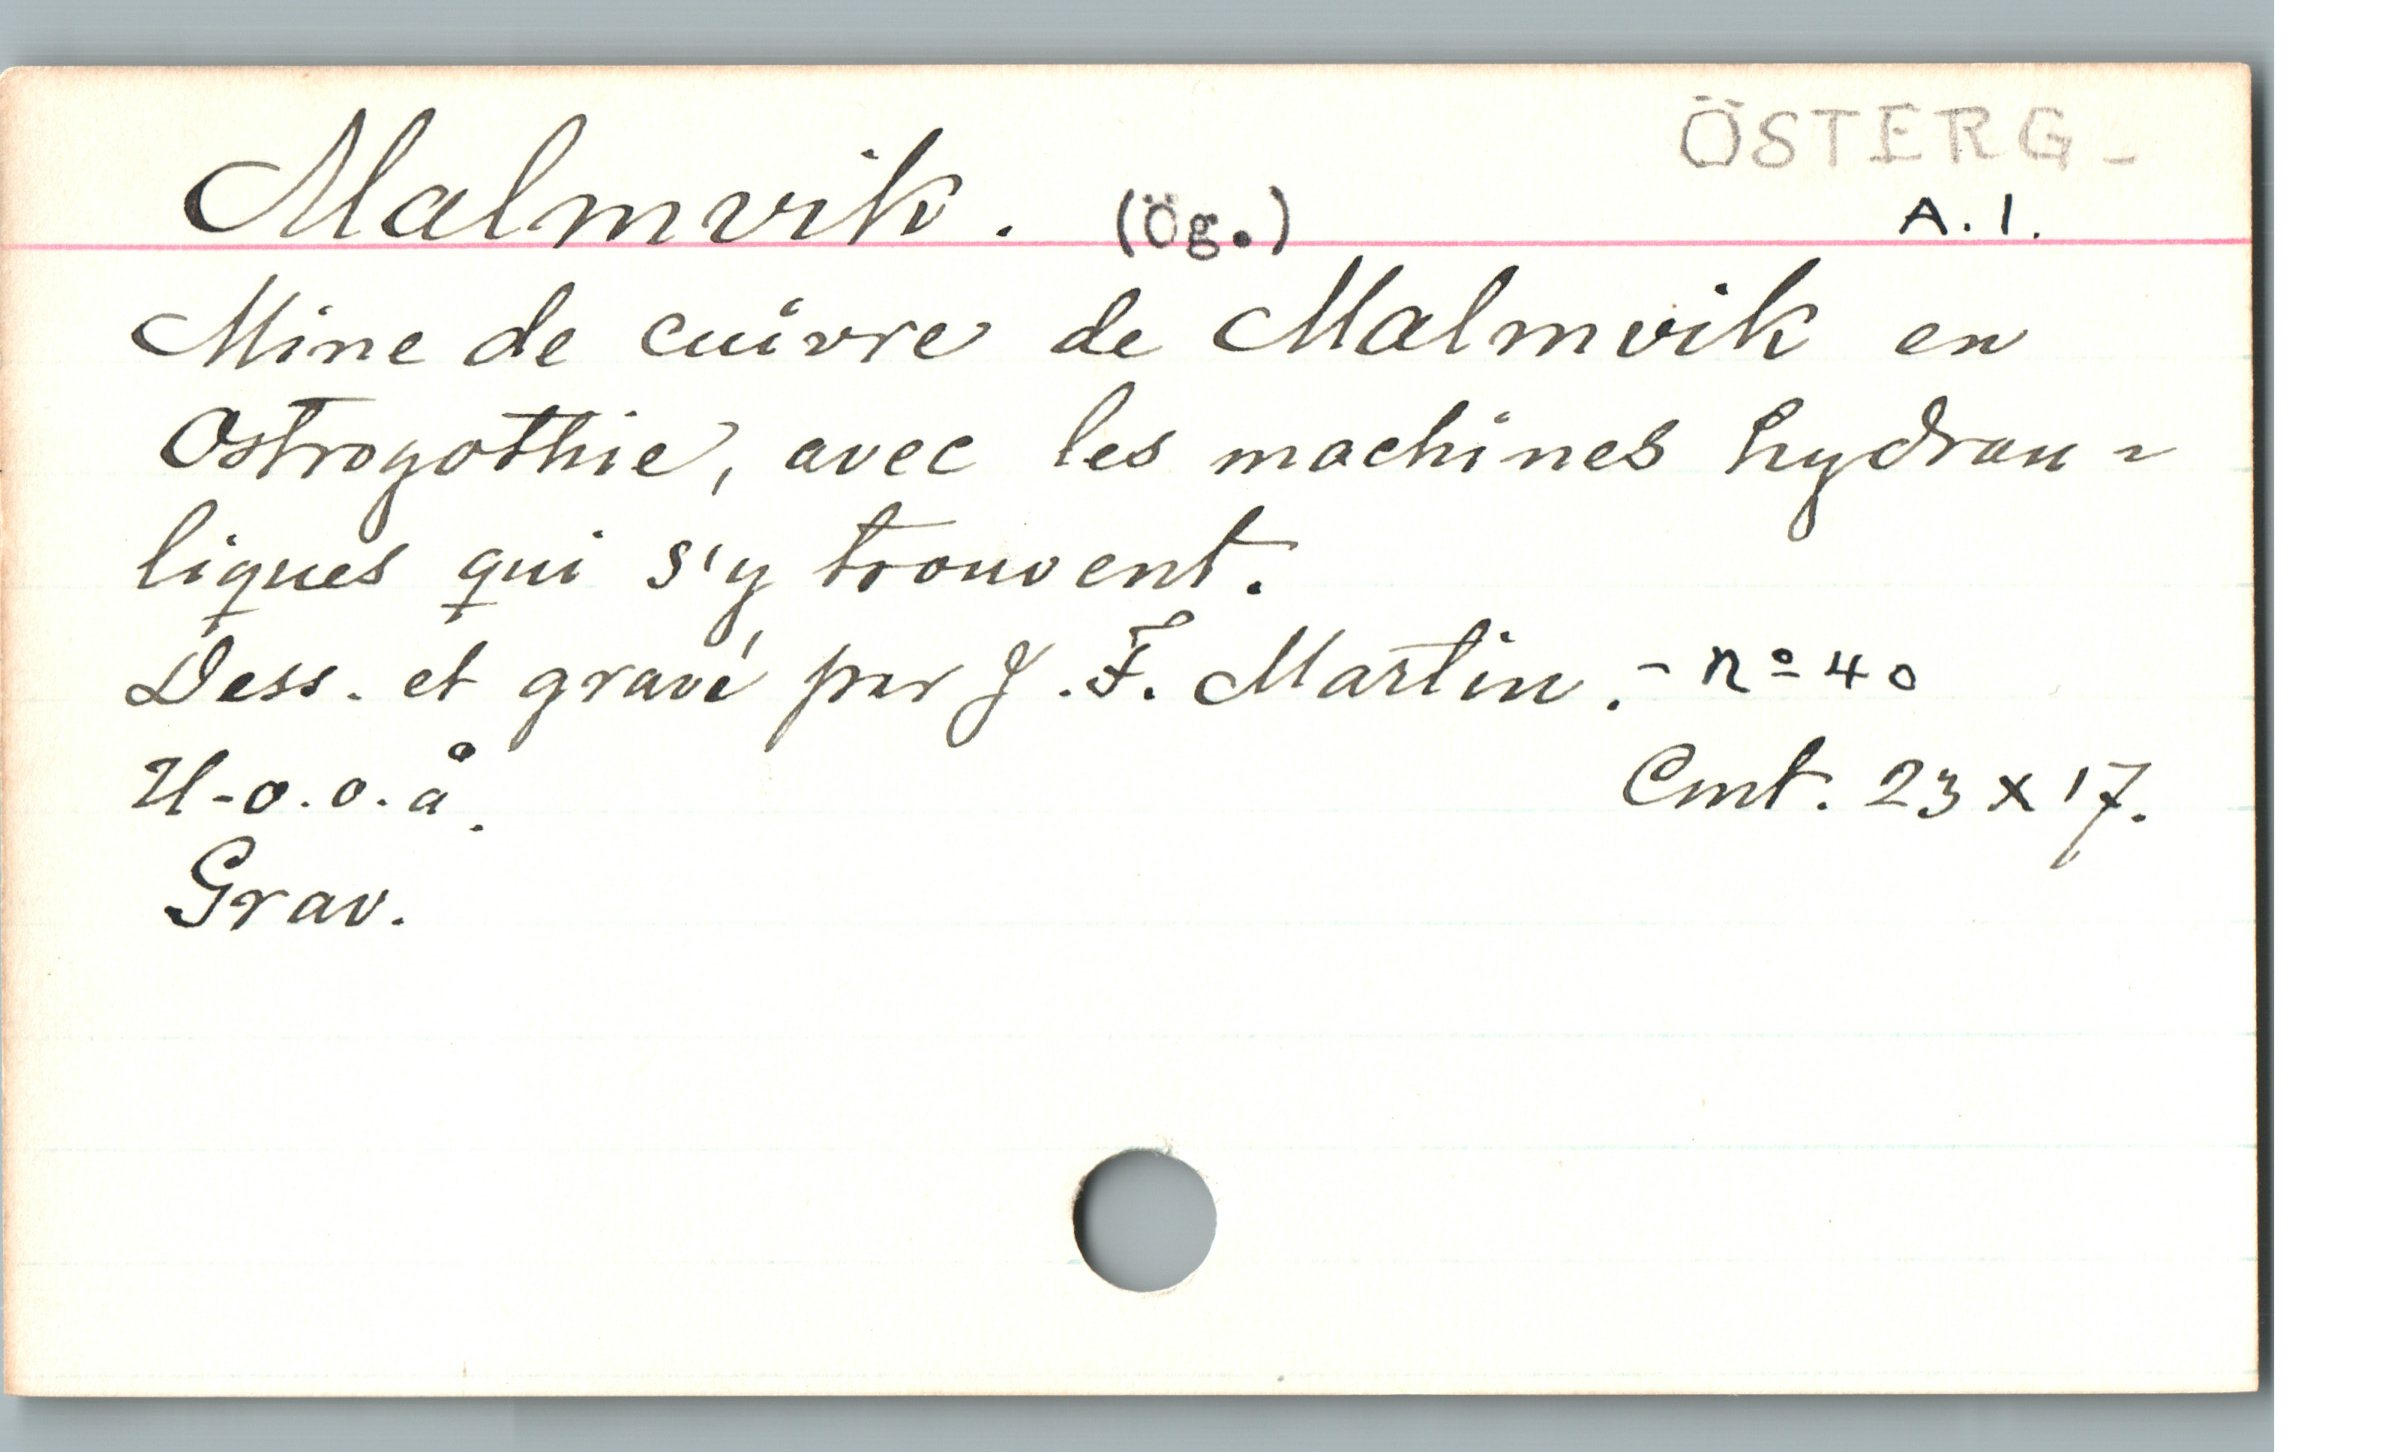 ÖSTERG-
Malmvik. (Ög.) A.1.
Mine de cuivre de Malmvik en
Ostrogothie, avec les machines hydrau-
liques qui s'y trouvent.
Dess. et gravé par J. F. Martin. - nº 40
U-o.o.å. Cmt. 23 x 17.
Grav.